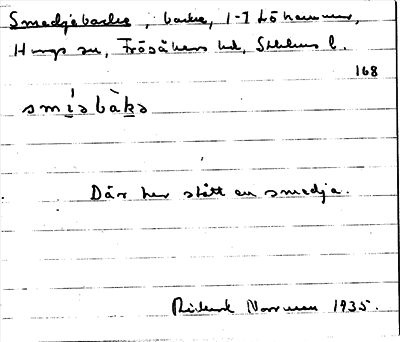 Smedjebacke, backe, 1-7 Löhammar,
Hargs sn, Frösåkers hd, Sthlms l.
168
smìsbàkа
Där har stått en smedja.
Rickard Norrman 1935.